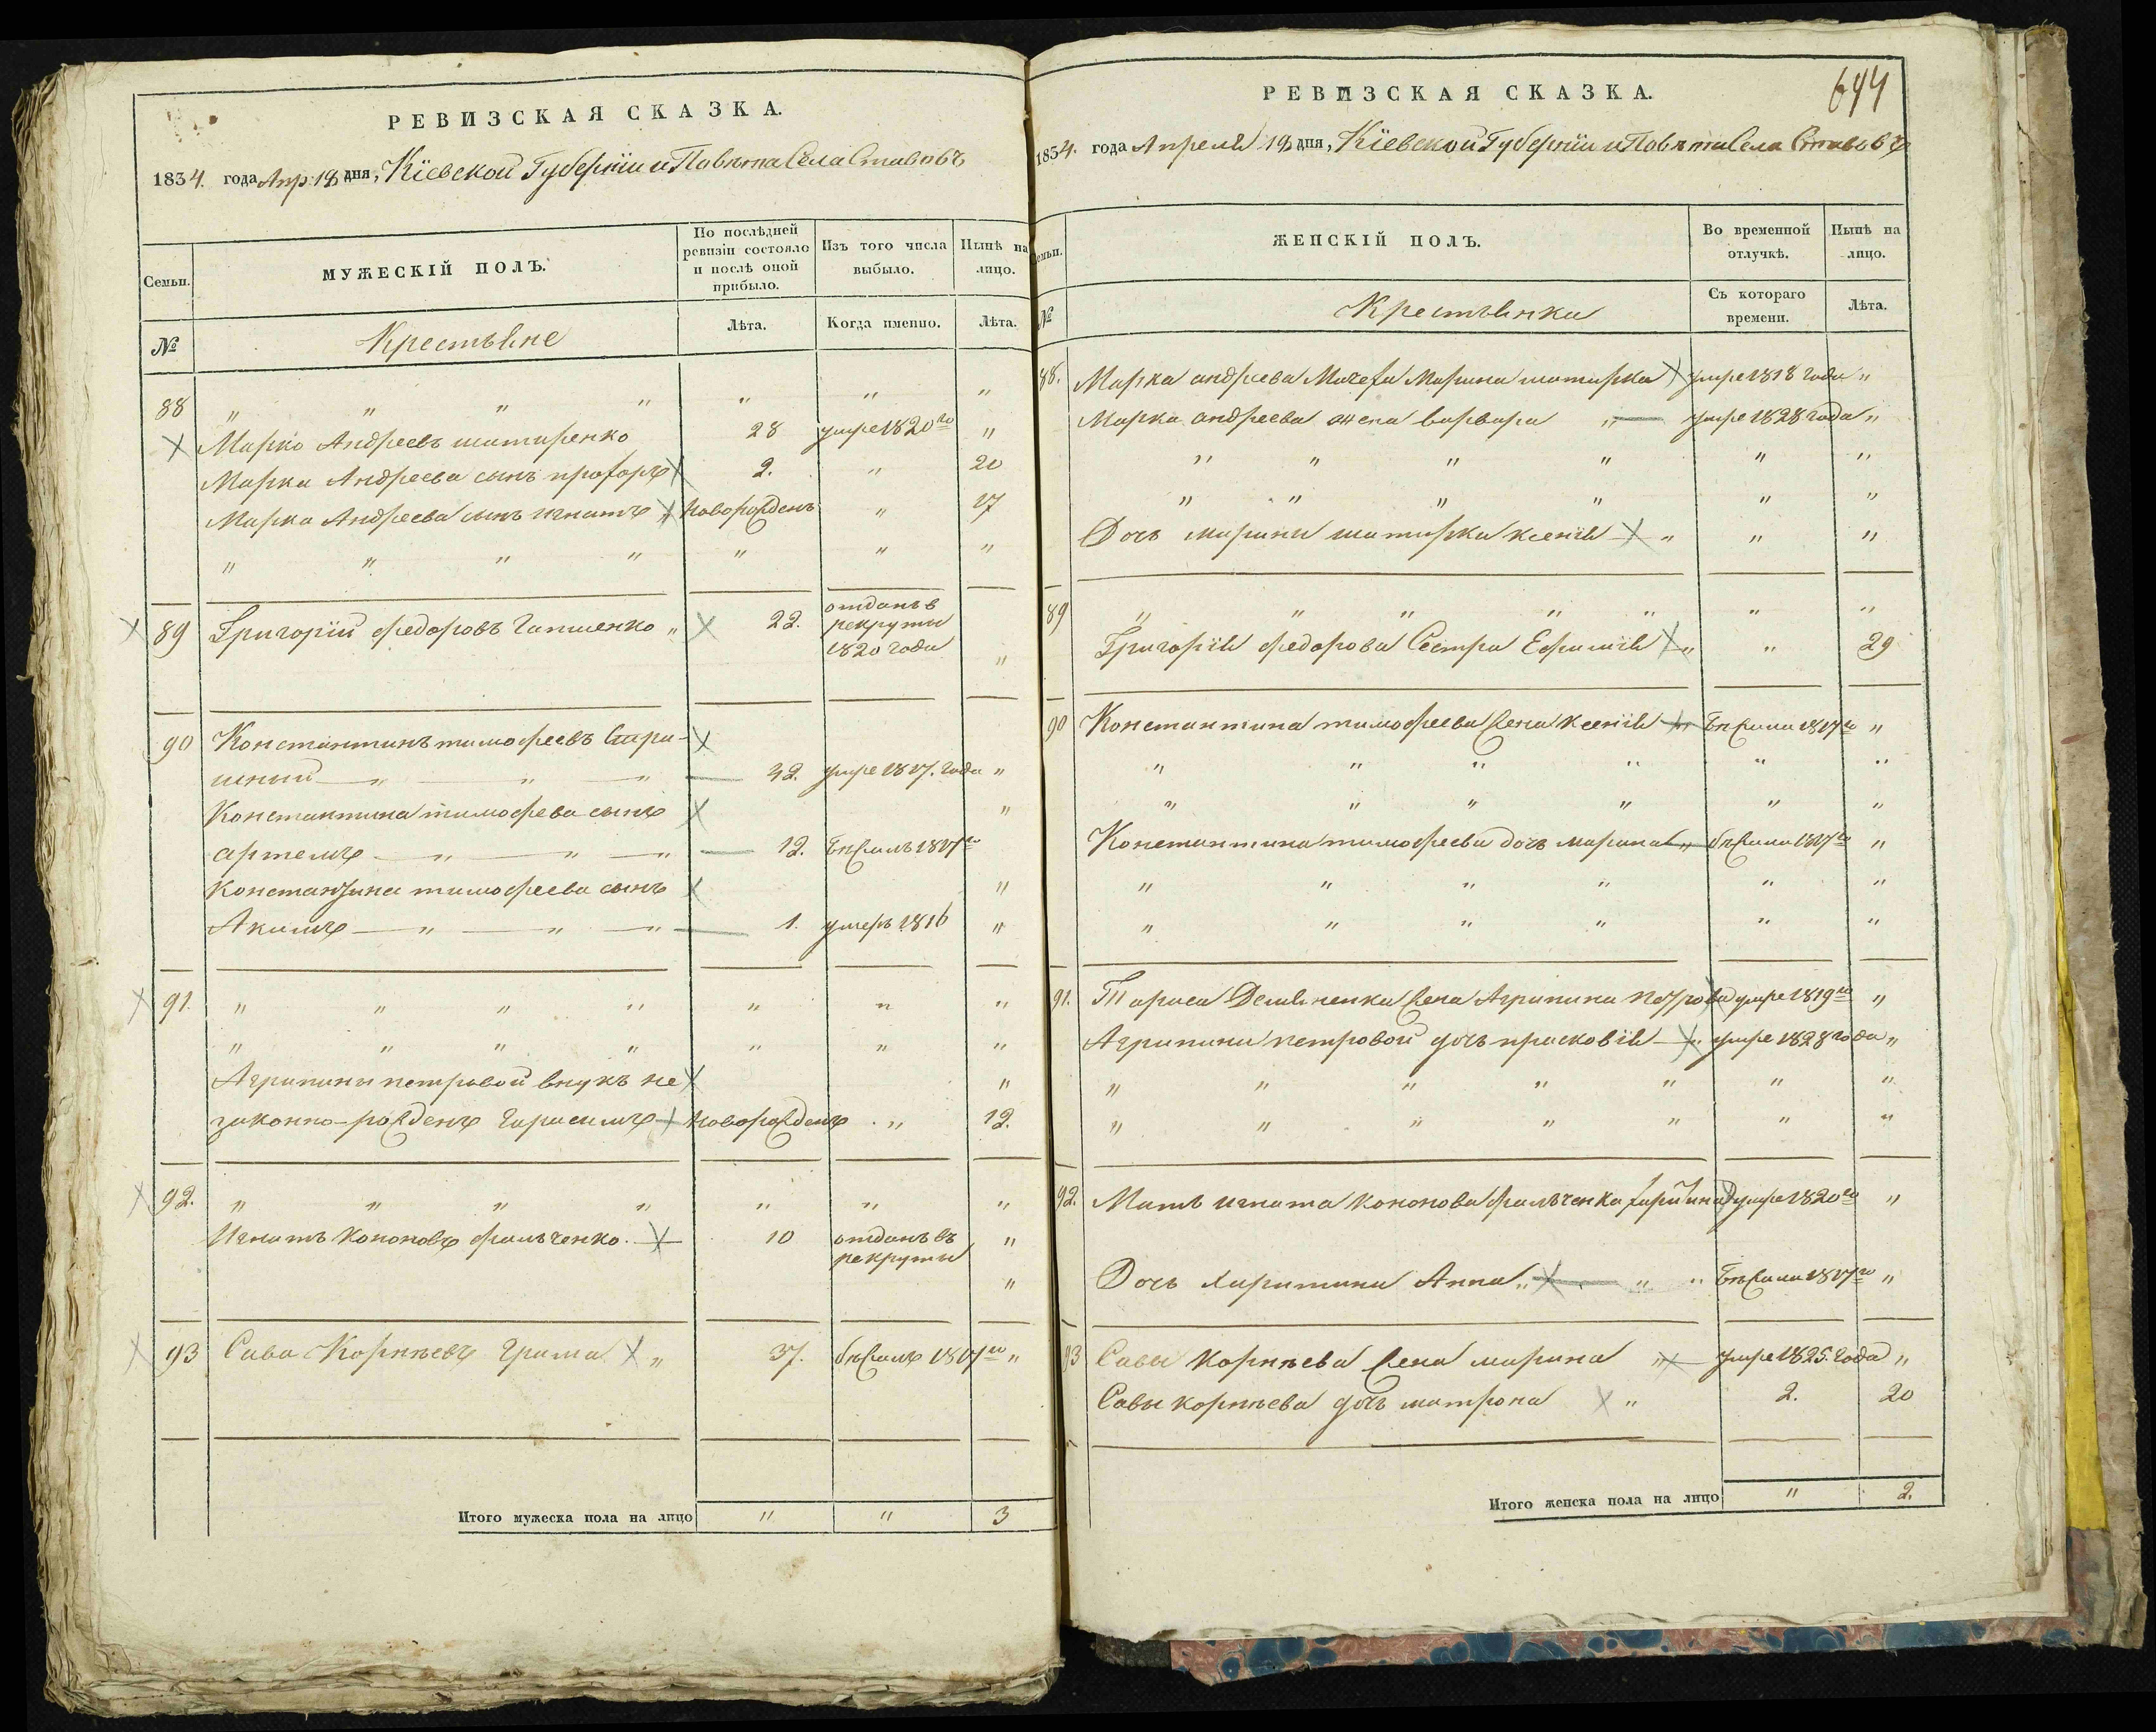 РЕВИЗСКАЯ СКАЗКА.
1834. года Апр: 18 дня, Кіевской Губерніи и Повѣта Села Ставовъ
Семьи.
МУЖЕСКІЙ ПОЛЪ.
По послѣдней ревизіи состояло и послѣ оной прибыло.
Изъ того числа выбыло.
Нынѣ на лицо.
№
Крестьяне
Лѣта.
Когда именно.
Лѣта.
88 " " " " " " "
Марко Андреевъ шатиренко 28 умре 1820го "
Марка Андреева сынъ прохоръ 2. " 20
Марка Андреева сынъ игнатъ " новорожденъ " 17
" " " " " " "
89 Григорій федоровъ Гапшенко " 22. отданъ в
рекруты
1820 года "
90 Константинъ тимофеевъ Стра-
шний " " " 32. умре 1817. года "
Константина тимофева сынъ "
артемъ " " " 12. бѣжалъ 1817го
Константина тимофеева сынъ "
Акимъ " " " 1. умеръ 1816 "
91. " " " " " " "
" " " " " " "
Агрипины петровой внукъ не "
законно-рожденъ Гарасимъ новорожденъ " 12.
92. " " " " " " "
Игнатъ кононовъ фальченко. 10 отданъ въ "
рекруты
"
93 Сава Корнѣевъ Грима " 37. бѣжалъ 1817го "
Итого мужеска пола на лицо " " 3
644
РЕВИЗСКАЯ СКАЗКА.
1834. года Апреля 18 дня, Кіевской Губерніи и Повѣта Села Ставовъ
емьи.
ЖЕНСКІЙ ПОЛЪ.
Во временной отлучкѣ.
Нынѣ на лицо.
№
Крестьянки
Съ котораго времени.
Лѣта.
88. Марка андреева Мачеха Марина шатирка умре 1818 года "
Марка андреева жена варвара " умре 1828 года "
" " " " " "
" " " " " "
Дочь марины шатирки ксенія " " "
89 " " " " " " "
Григорія федорова Сестра Ефимія " " 29
90 Константина тимофеева жена Ксенія " бѣжала 1817го "
" " " " " "
" " " " " "
Константина тимофеева дочь марина " бѣжала 1817го "
" " " " " "
" " " " " "
91. Тараса Демяненка жена Агрипина петрова умре 1819го "
Агрипины петровой дочь прасковія " умре 1828 года "
" " " " " " "
" " " " " " "
92. Мать игната кононова фальченка харитина умре 1820го "
Дочь харитины Анна " " " бѣжала 1817го "
93 Савы Корнѣева жена марина " умре 1825. года "
Савы корнѣева дочь матрона " 2. 20
Итого женска пола на лицо " 2.